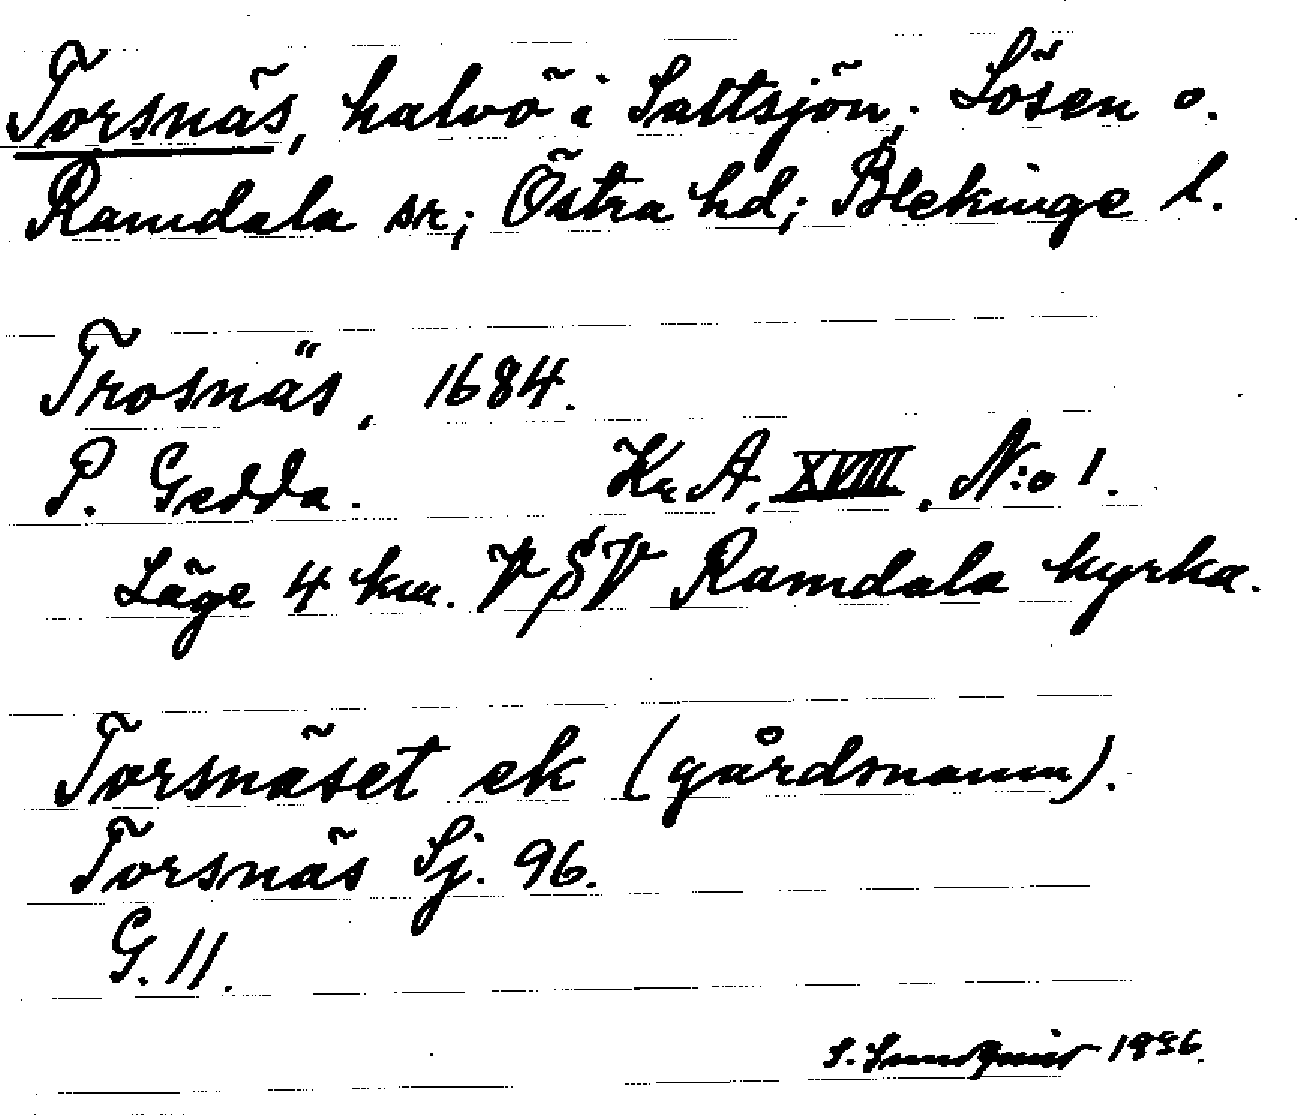 Torsnäs, halvö i Saltsjön; Lösen o.
Ramdala sr; Östra hd; Blekinge l.
Trosnäs, 1684.
P. Gedda. Kr. A, XVIII, N:o 1.
Läge 4 km. VSV Ramdala kyrka.
Torsnäset ek (gårdsnamn).
Torsnäs Sj. 96.
G. 11.
S. Sundquist 1936.